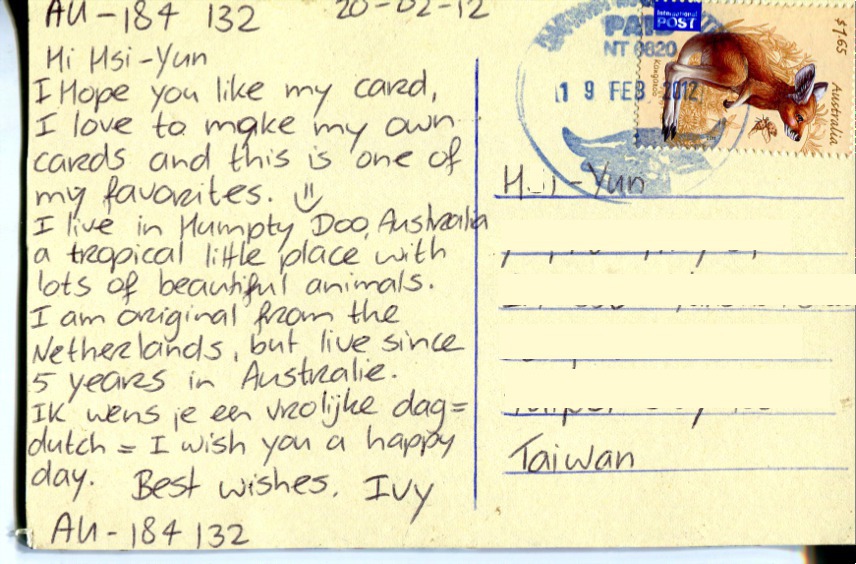 AU-184 132 20-02-12
Hi Hsi-Yun
I Hope you like my card,
I love to make my own
cards and this is one of
my favorites.
I live in Humpty Doo, Australia
a tropical little place with
lots of beautiful animals.
I am original from the
Netherlands, but live since
5 years in Australie.
Ik wens je een vrolijke dag=
dutch = I wish you a happy
day. Best wishes, Ivy
AU-184 132
International
POST
$1.65
Australia
Kangaroo
NT 0820
19 FEB 2012
Yun
Taiwan